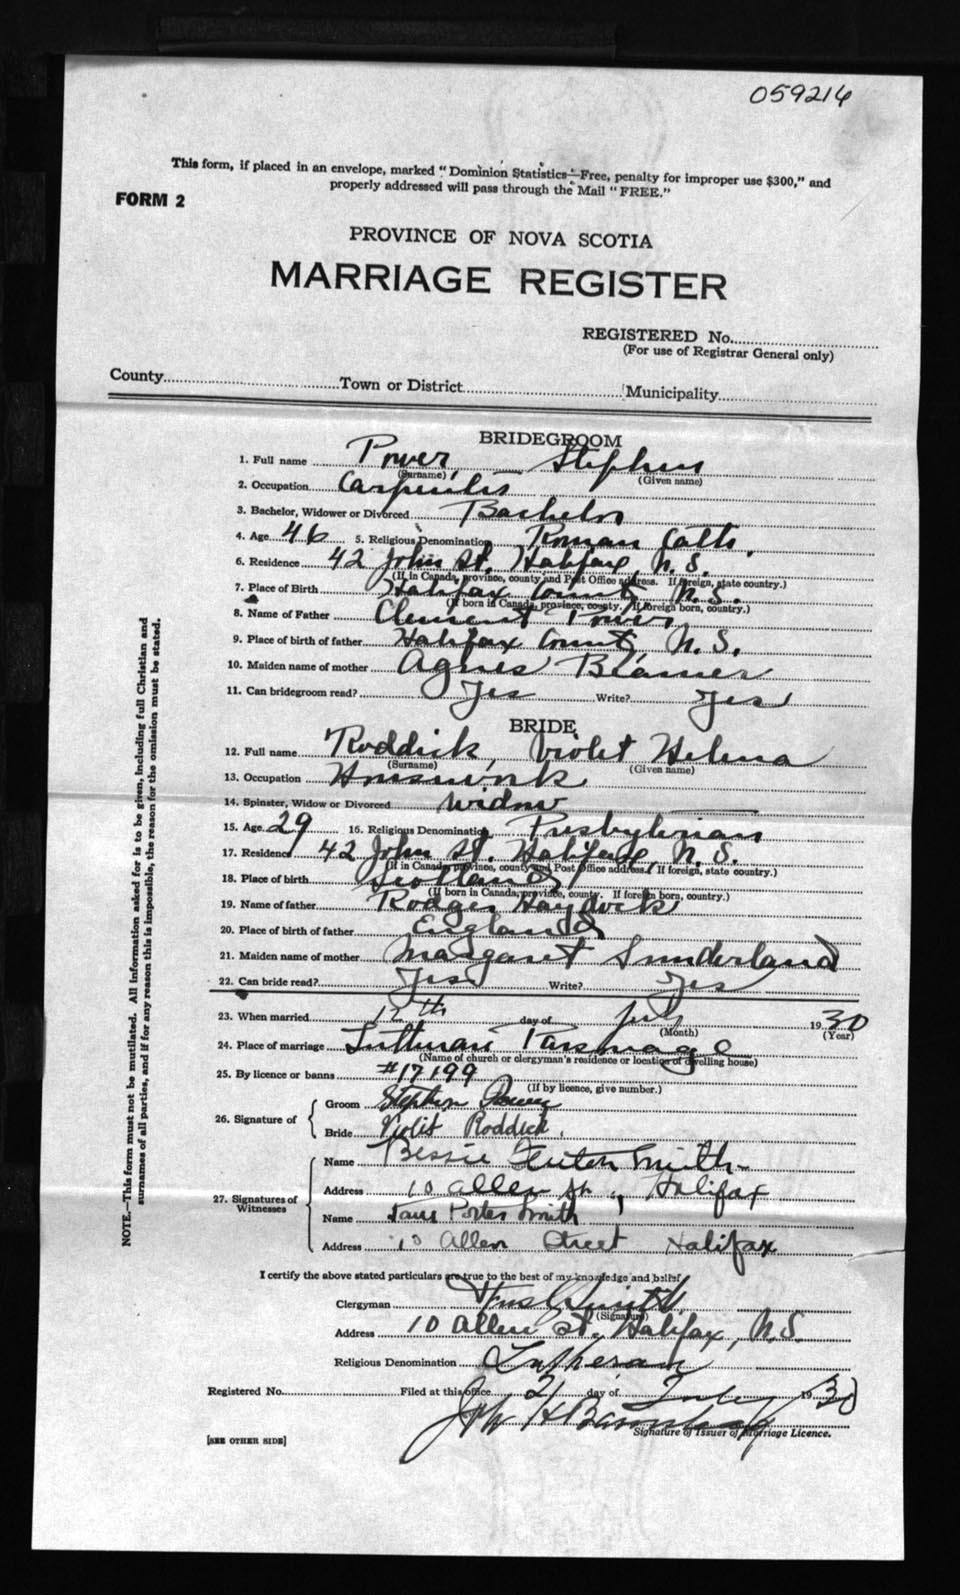 059216
This form, if placed in an envelope, marked "Dominion Statistics—Free, penalty for improper use $300," and
properly addressed will pass through the Mail "FREE."
FORM 2
PROVINCE OF NOVA SCOTIA
MARRIAGE REGISTER
REGISTERED No.
(For use of Registrar General only)
County Town or District Municipality
BRIDEGROOM
1. Full name Power, Stephen
(Surname) (Given name)
2. Occupation Carpenter
3. Bachelor, Widower or Divorced Bachelor
4. Age 46 5. Religious Denomination Roman Cath.
6. Residence 42 John St. Halifax, N. S.
(If in Canada, province, county and Post Office address. If foreign, state country.)
7. Place of Birth Halifax County N. S.
(If born in Canada, province, county. If foreign born, country.)
8. Name of Father Clement Power
9. Place of birth of father Halifax County, N. S.
10. Maiden name of mother Agnes Beamer
11. Can bridegroom read? Yes Write? Yes
BRIDE
12. Full name Roddick, Violet Helena
(Surname) (Given name)
13. Occupation Housework
14. Spinster, Widow or Divorced Widow
15. Age 29 16. Religious Denomination Presbyterian
17. Residence 42 John St. Halifax, N. S.
(If in Canada, province, county and Post Office address. If foreign, state country.)
18. Place of birth Scotland
(If born in Canada, province, county. If foreign born, country.)
19. Name of father Rodger Haydock
20. Place of birth of father England
21. Maiden name of mother Margaret Sunderland
22. Can bride read? Yes Write? Yes
23. When married 17th day of July 1930
(Month) (Year)
24. Place of marriage Lutheran Parsonage
(Name of church or clergyman's residence or location of dwelling house)
25. By licence or banns #17199
(If by licence, give number.)
26. Signature of
Groom Stephen Power
Bride Violet Roddick.
27. Signatures of
Witnesses
Name Bessie Smith
Address 10 Allen St., Halifax
Name Porter Smith
Address 10 Allen Street Halifax
I certify the above stated particulars are true to the best of my knowledge and belief.
Clergyman
(Signature)
Address 10 Allen St. Halifax, N.S.
Religious Denomination Lutheran
Registered No. Filed at this office 21 day of July 1930
Signature of Issuer of Marriage Licence.
[SEE OTHER SIDE]
NOTE.—This form must not be mutilated. All information asked for is to be given, including full Christian and
surnames of all parties, and if for any reason this is impossible, the reason for the omission must be stated.